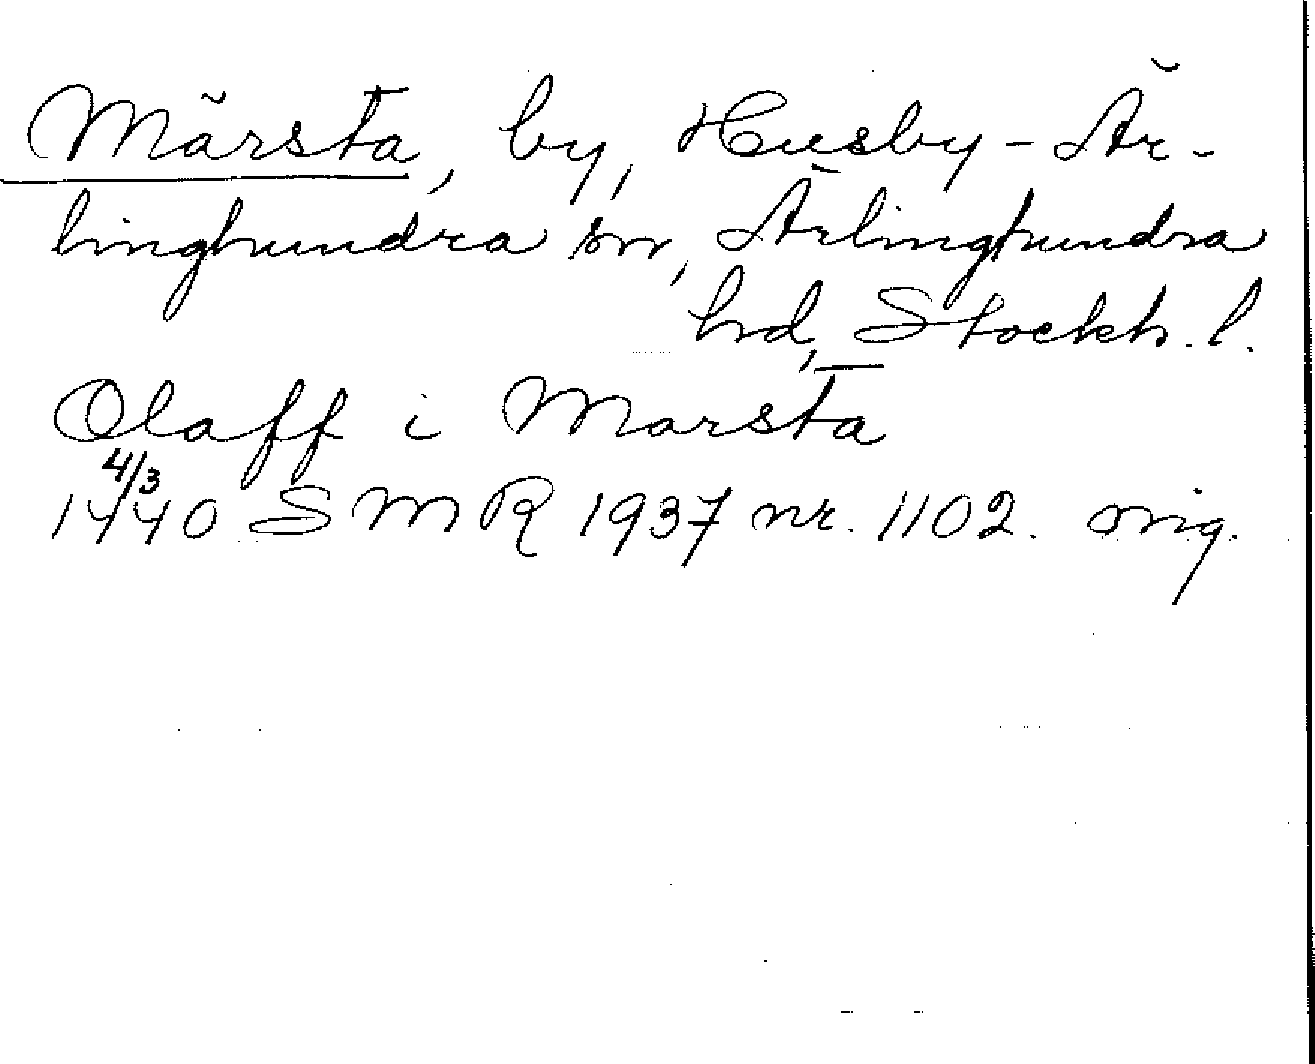 Märsta, by, Husby-Är-
linghundra sn, Ärlinghundra
hd, Stockh. l.
Olaff i Marsta
4/3
1440 SMR 1937 nr. 1102. orig.